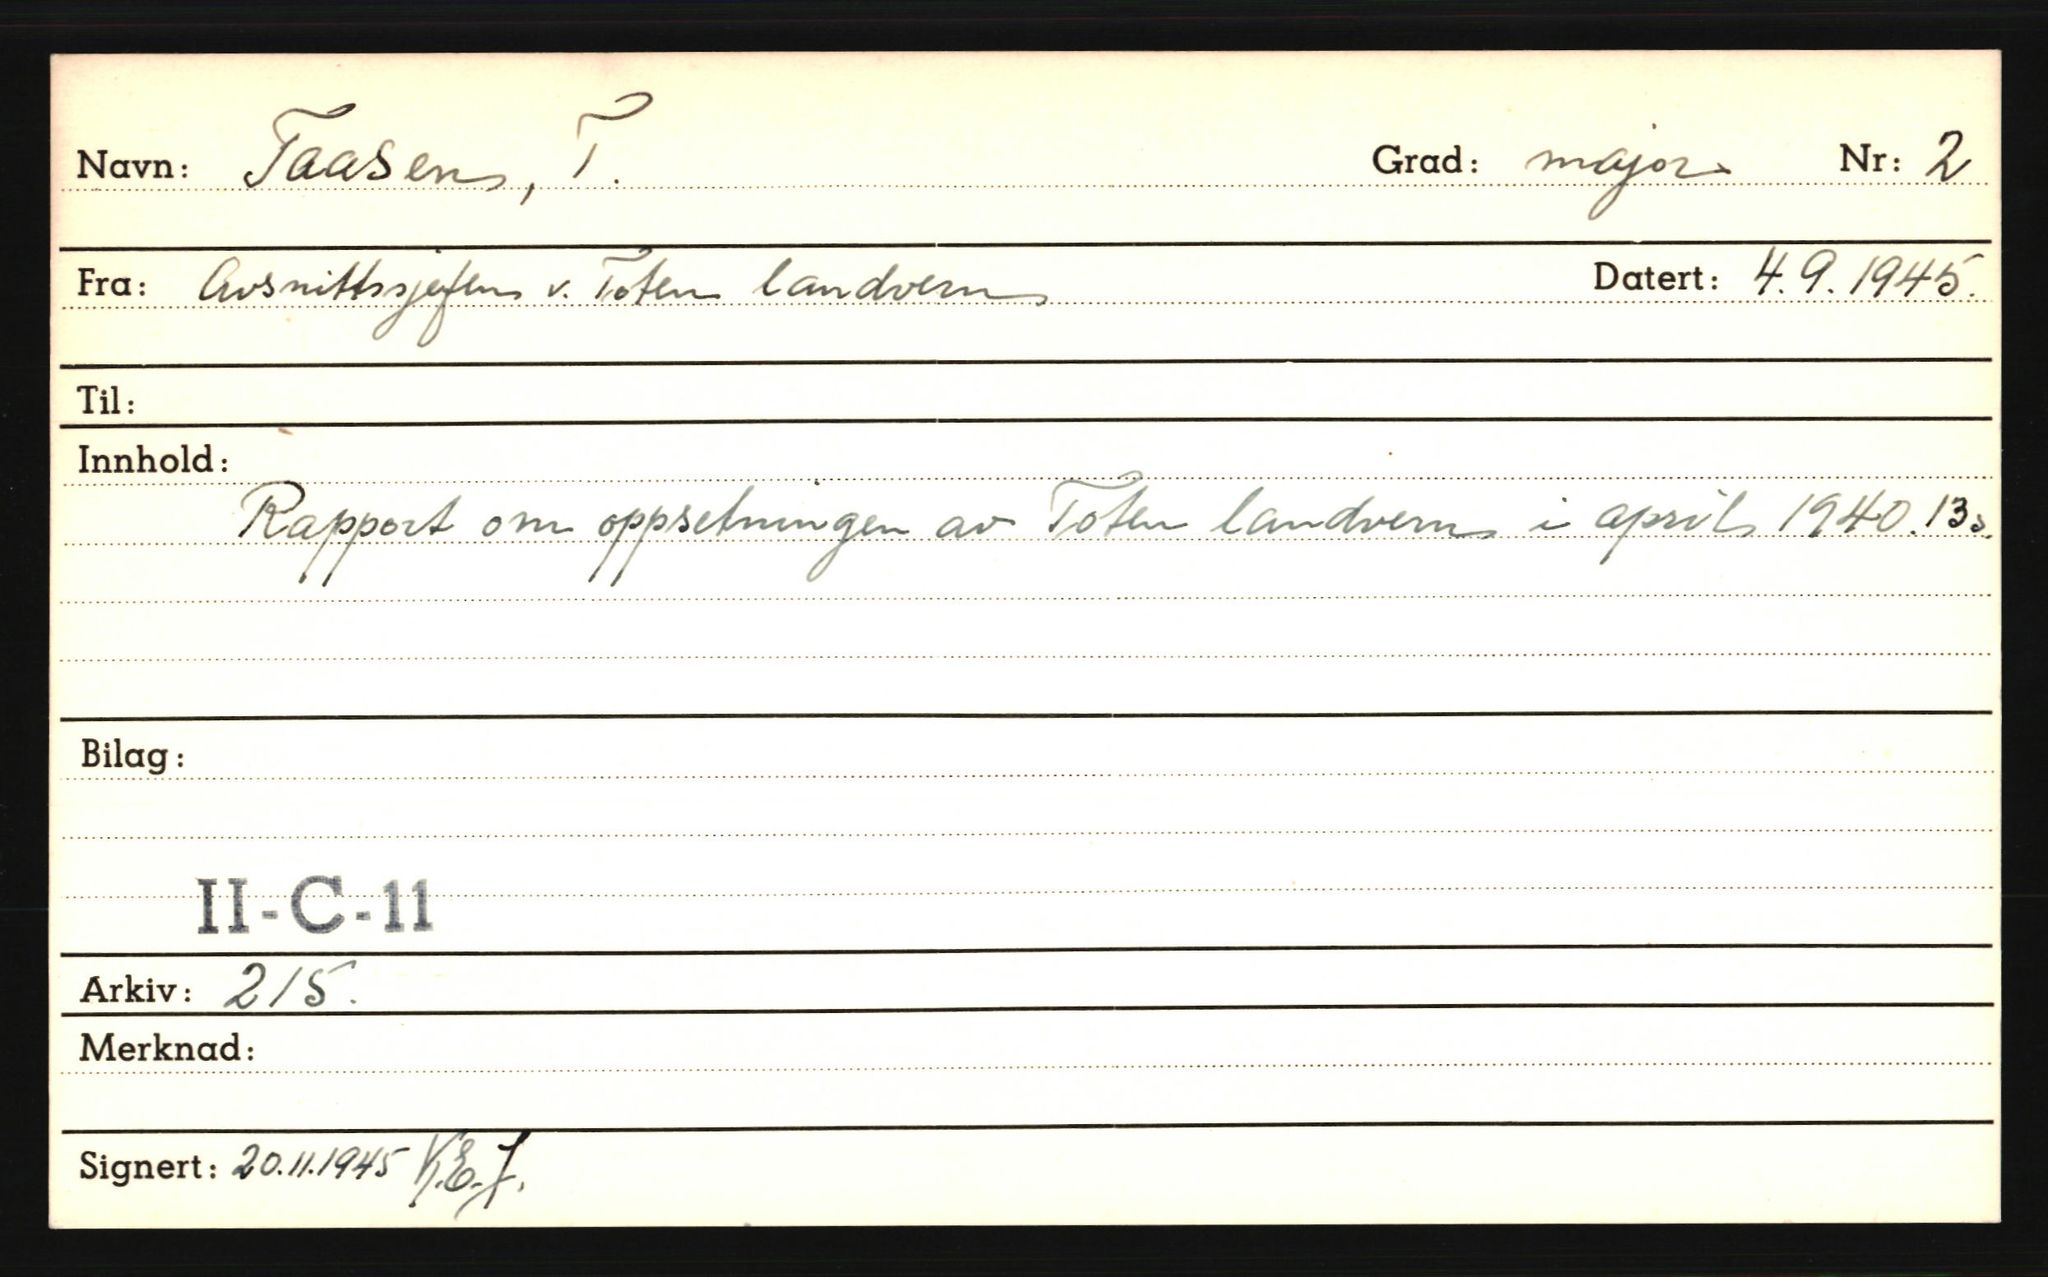 Navn: Taasen, T. Grad: major Nr: 2
Fra: Avsnittssjefen v. Toten landvern Datert: 4.9.1945.
Til:
Innhold:
Rapport om oppsetningen av Toten landvern i april 1940. 13 s.
Bilag:
II-C-11
Arkiv: 215.
Merknad:
Signert: 20.11.1945 K.E.J.